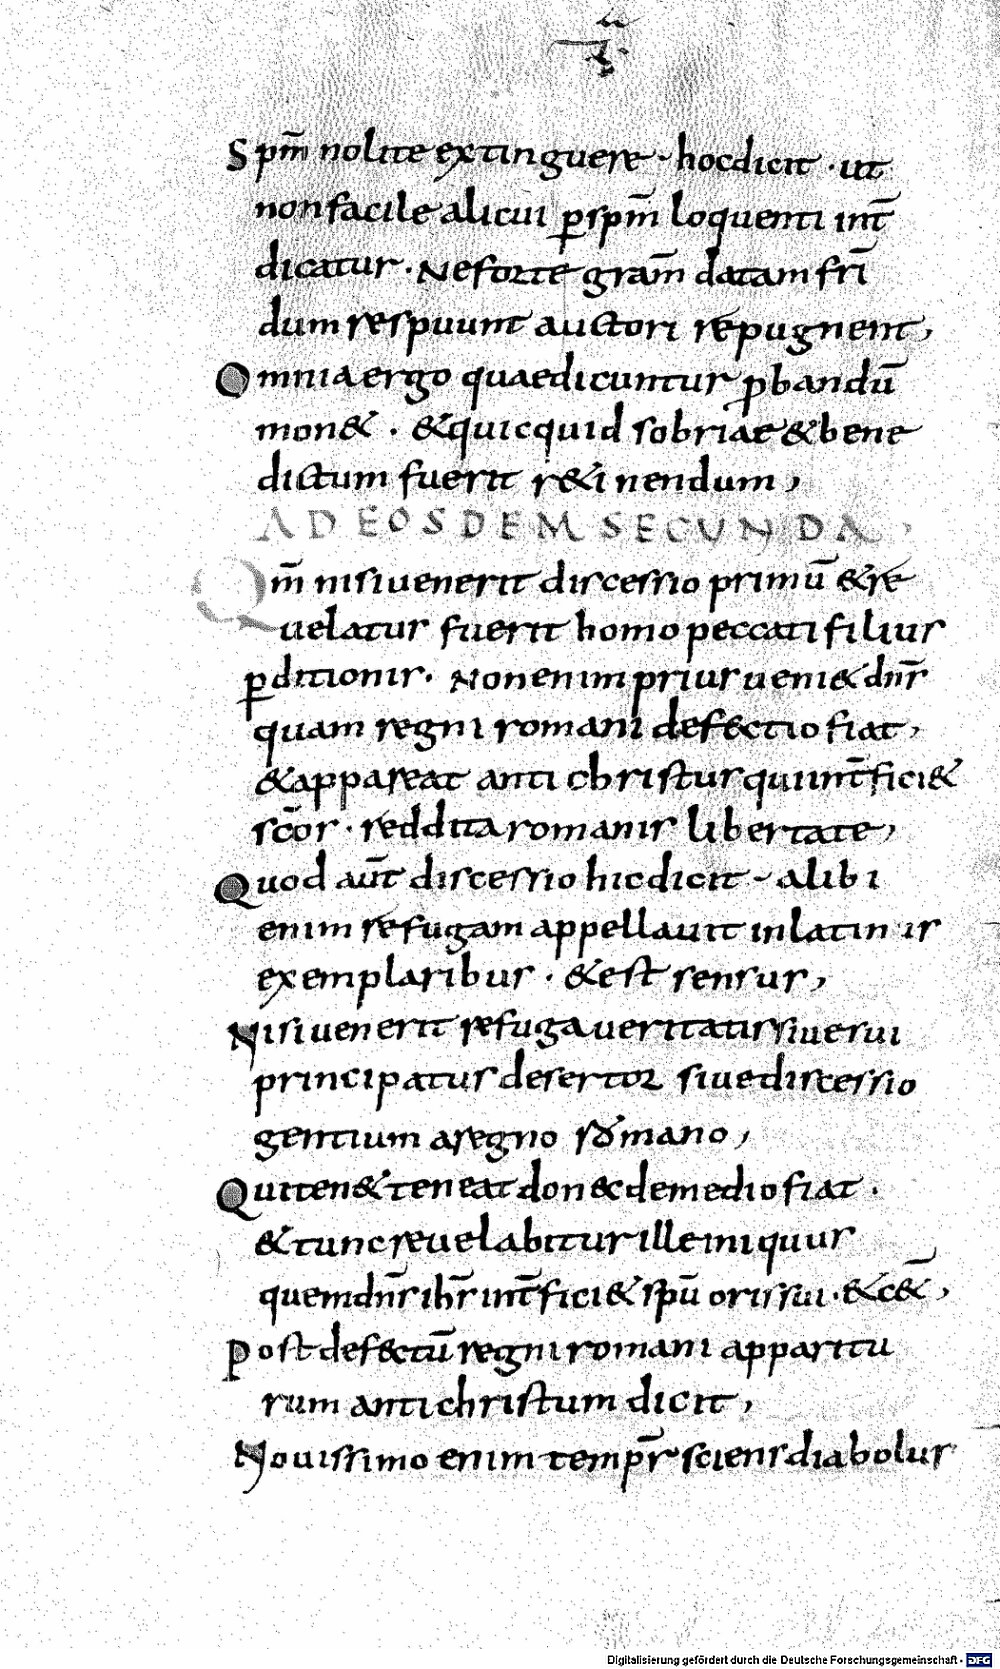 Spm̄ nolite extinguere · hocdicit · ut
nonfacile alicui ꝑspm̄ loquenti int̄
dicatur · Neforte gram̄ datam frī
dum respuunt auctori repugnent,
Omnia ergo quaedicuntur ꝓbandū
mon& · &quicquid sobriae &bene
dictum fuerit r&inendum,
AD EOSDEM SECUNDA,
Qm̄ nisi uenerit discessio primū &re
uelatur fuerit homo peccati filius
ꝑditionis · Non enim prius ueni& dn̄s
quam regni romani def&ctio fiat,
&appareat anti christus qui int̄fici&
sc̄os · reddita romanis libertate,
Quod aut̄ discessio hic dicit · alibi
enim refugam appellauit inlatinis
exemplaribus · &est sensus,
Nisi uenerit refuga ueritatis siue sui
principatus desertor siue discessio
gentium aregno romano,
Qui ten& teneat don&c demedio fiat ·
&tunc reuelabitur ille iniquus
quem dn̄s ih̄s int̄fici& spū oris sui · &c&̄,
Post def&ctū regni romani apparitu
rum antichristum dicit,
Nouissimo enim temp̄r sciens diabolus
Digitalisierung gefördert durch die Deutsche Forschungsgemeinschaft - DFG